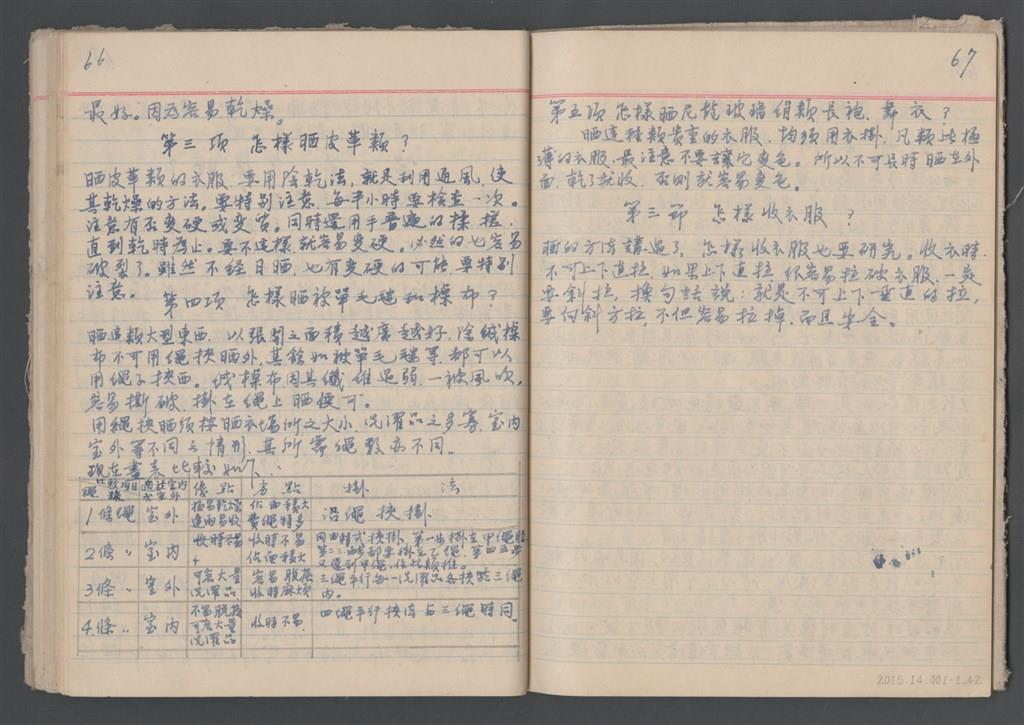 66
最好。因為容易乾燥。
第三項 怎樣晒皮革類？
晒皮革類的衣服，要用陰乾法，就是利用通風，使
其乾燥的方法。要特別注意，每半小時要檢查一次。
注意有否變硬或變質。同時還用手普遍的揉搓，
直到乾時為止。要不這樣就容易變硬。必然的也容易
破裂了。雖然不經日晒，也有變硬的可能，要特別
注意。
第四項 怎樣晒被單毛毯和棉布？
晒這類大型東西，以張開之面積越廣越好，除絨棉
布不可用繩挾晒外，其餘如被單毛毯等，都可以
用繩子挾晒。絨棉布因其纖維過弱，一被風吹，
容易撕破，掛在繩上晒便可。
用繩挾晒須按晒衣場所之大小，洗濯品之多寡，室內
室外等不同之情形，其所需繩數亦不同。
現在畫表比較如下：
繩數 項目 適於室內或室外 優點 劣點 掛法
1條繩 室外 極易乾燥 遇雨易收 佔面積大 費繩特多 沿繩挾掛
2條〃 室內 收時不易 收時不易 佔面積大 第一步掛在甲繩 又還到甲繩，依此類推。
3條〃 室外 可容大量洗濯品 容易脫落 收時麻煩 三繩平行每一洗濯品各挾於三繩內。
4條〃 室內 不易脫落 可容大量洗濯品 收時不易 四繩平行挾法與三繩時同。
67
第五項 怎樣晒尼龍玻璃絹類長袍、舞衣？
晒這種類貴重的衣服，均須用衣掛，凡類此極
薄的衣服，最注意不要讓它變色。所以不可長時晒在外
面，乾了就收，否則就容易變色。
第三節 怎樣收衣服？
晒的方法講過了，怎樣收衣服也要研究。收衣時，
不可上下直拉，如果上下直拉，很容易拉破衣服，一定
要斜拉，換句話說：就是不可上下垂直的拉，
要向斜方拉，不但容易拉掉，而且安全。
2015.14.001-1.42